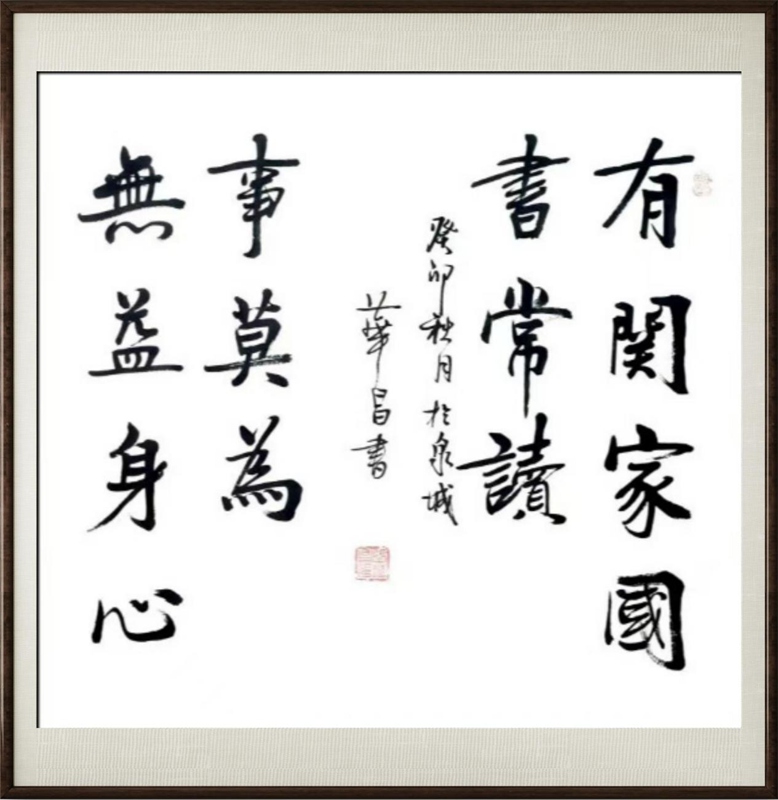 有関家國
書常讀
無益身心
事莫為
癸卯秋月於泉城
華昌書